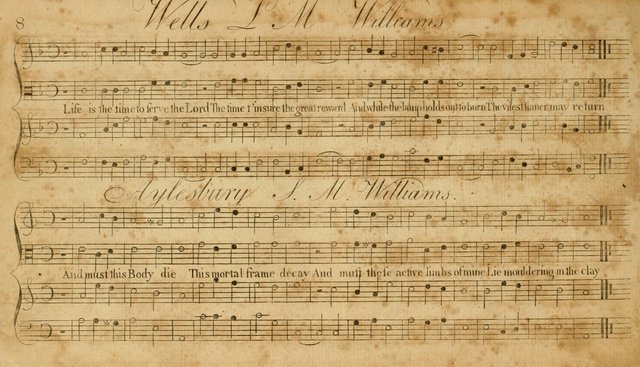 8
Wells L M Williams
Life is the time to ſerve the Lord The time t'insure the great reward And while the lamp holds out to burn The vilest sinner may return
Aylesbury S. M. Williams.
And must this Body die This mortal frame decay And muſt theſe active limbs of mine Lie mouldering in the clay